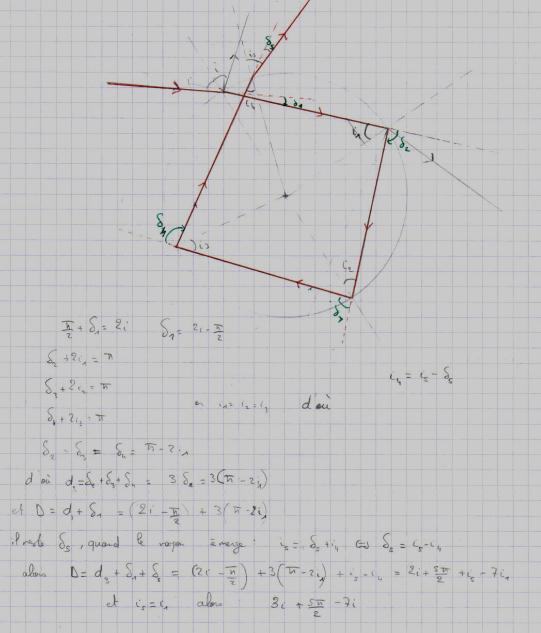 δ5
i
i5
i4
δ1
i1
δ2
δ4
i3
i2
δ3
π/2 + δ1 = 2i δ1 = 2i - π/2
δ2 + 2i1 = π
i4 = i5 - δ5
δ3 + 2i2 = π
or i1 = i2 = i3 d'où
δ4 + 2i3 = π
δ2 = δ3 = δ4 = π - 2i1
d'où d1 = δ2 + δ3 + δ4 = 3δ2 = 3(π - 2i1)
et D = d1 + δ1 = (2i - π/2) + 3(π - 2i1)
il reste δ5, quand le rayon émerge : i5 = δ5 + i4 ⇔ δ5 = i5 - i4
alors D = d1 + δ1 + δ5 = (2i - π/2) + 3(π - 2i1) + i5 - i4 = 2i + 5π/2 + i5 - 7i1
et i5 = i1 alors 3i + 5π/2 - 7i